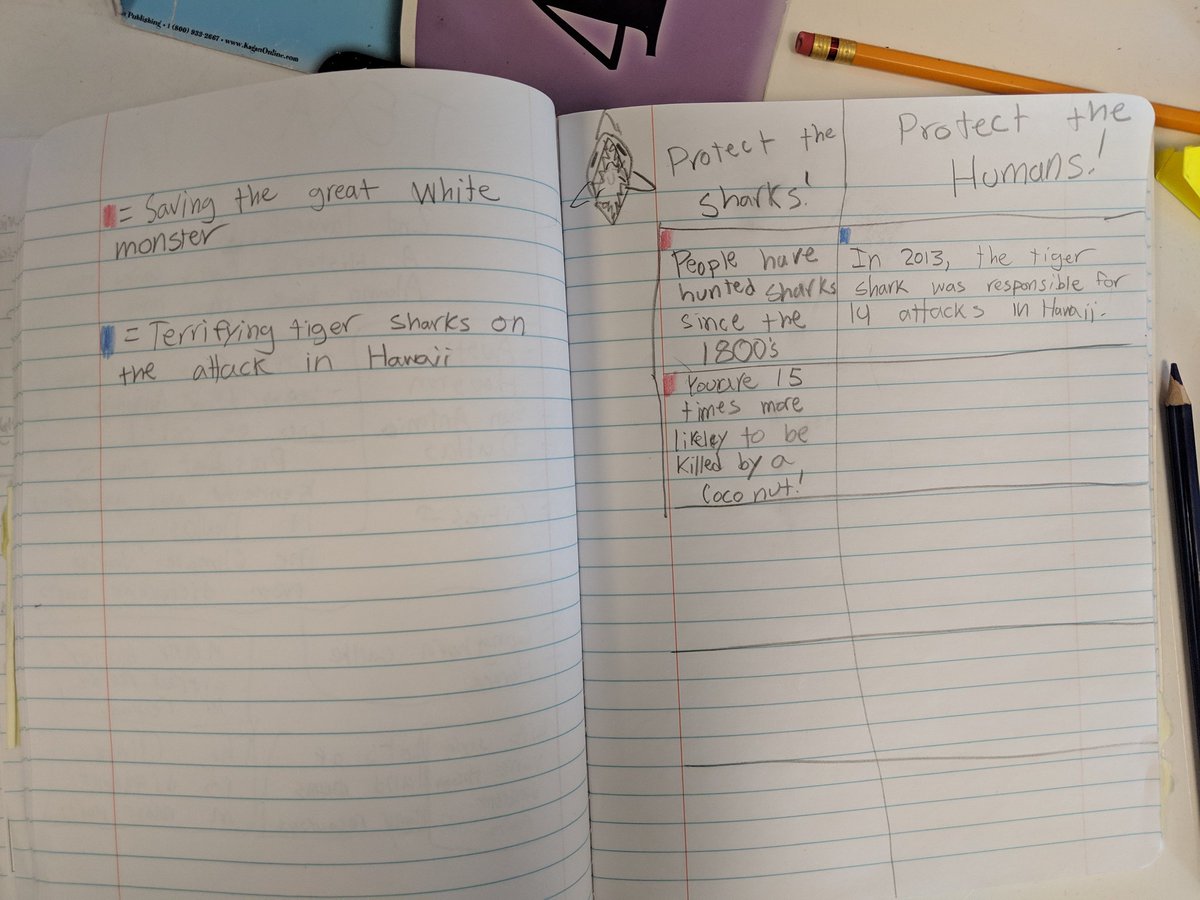 Publishing • 1 (800) 933-2667 • www.KaganOnline.com
= Saving the great White
monster
= Terrifying tiger sharks on
the attack in Hawaii
Protect the
sharks!
Protect the
Humans!
People have
hunted sharks
since the
1800's
Youare 15
times more
likeley to be
killed by a
Coconut!
In 2013, the tiger
shark was responsible for
14 attacks in Hawaii.